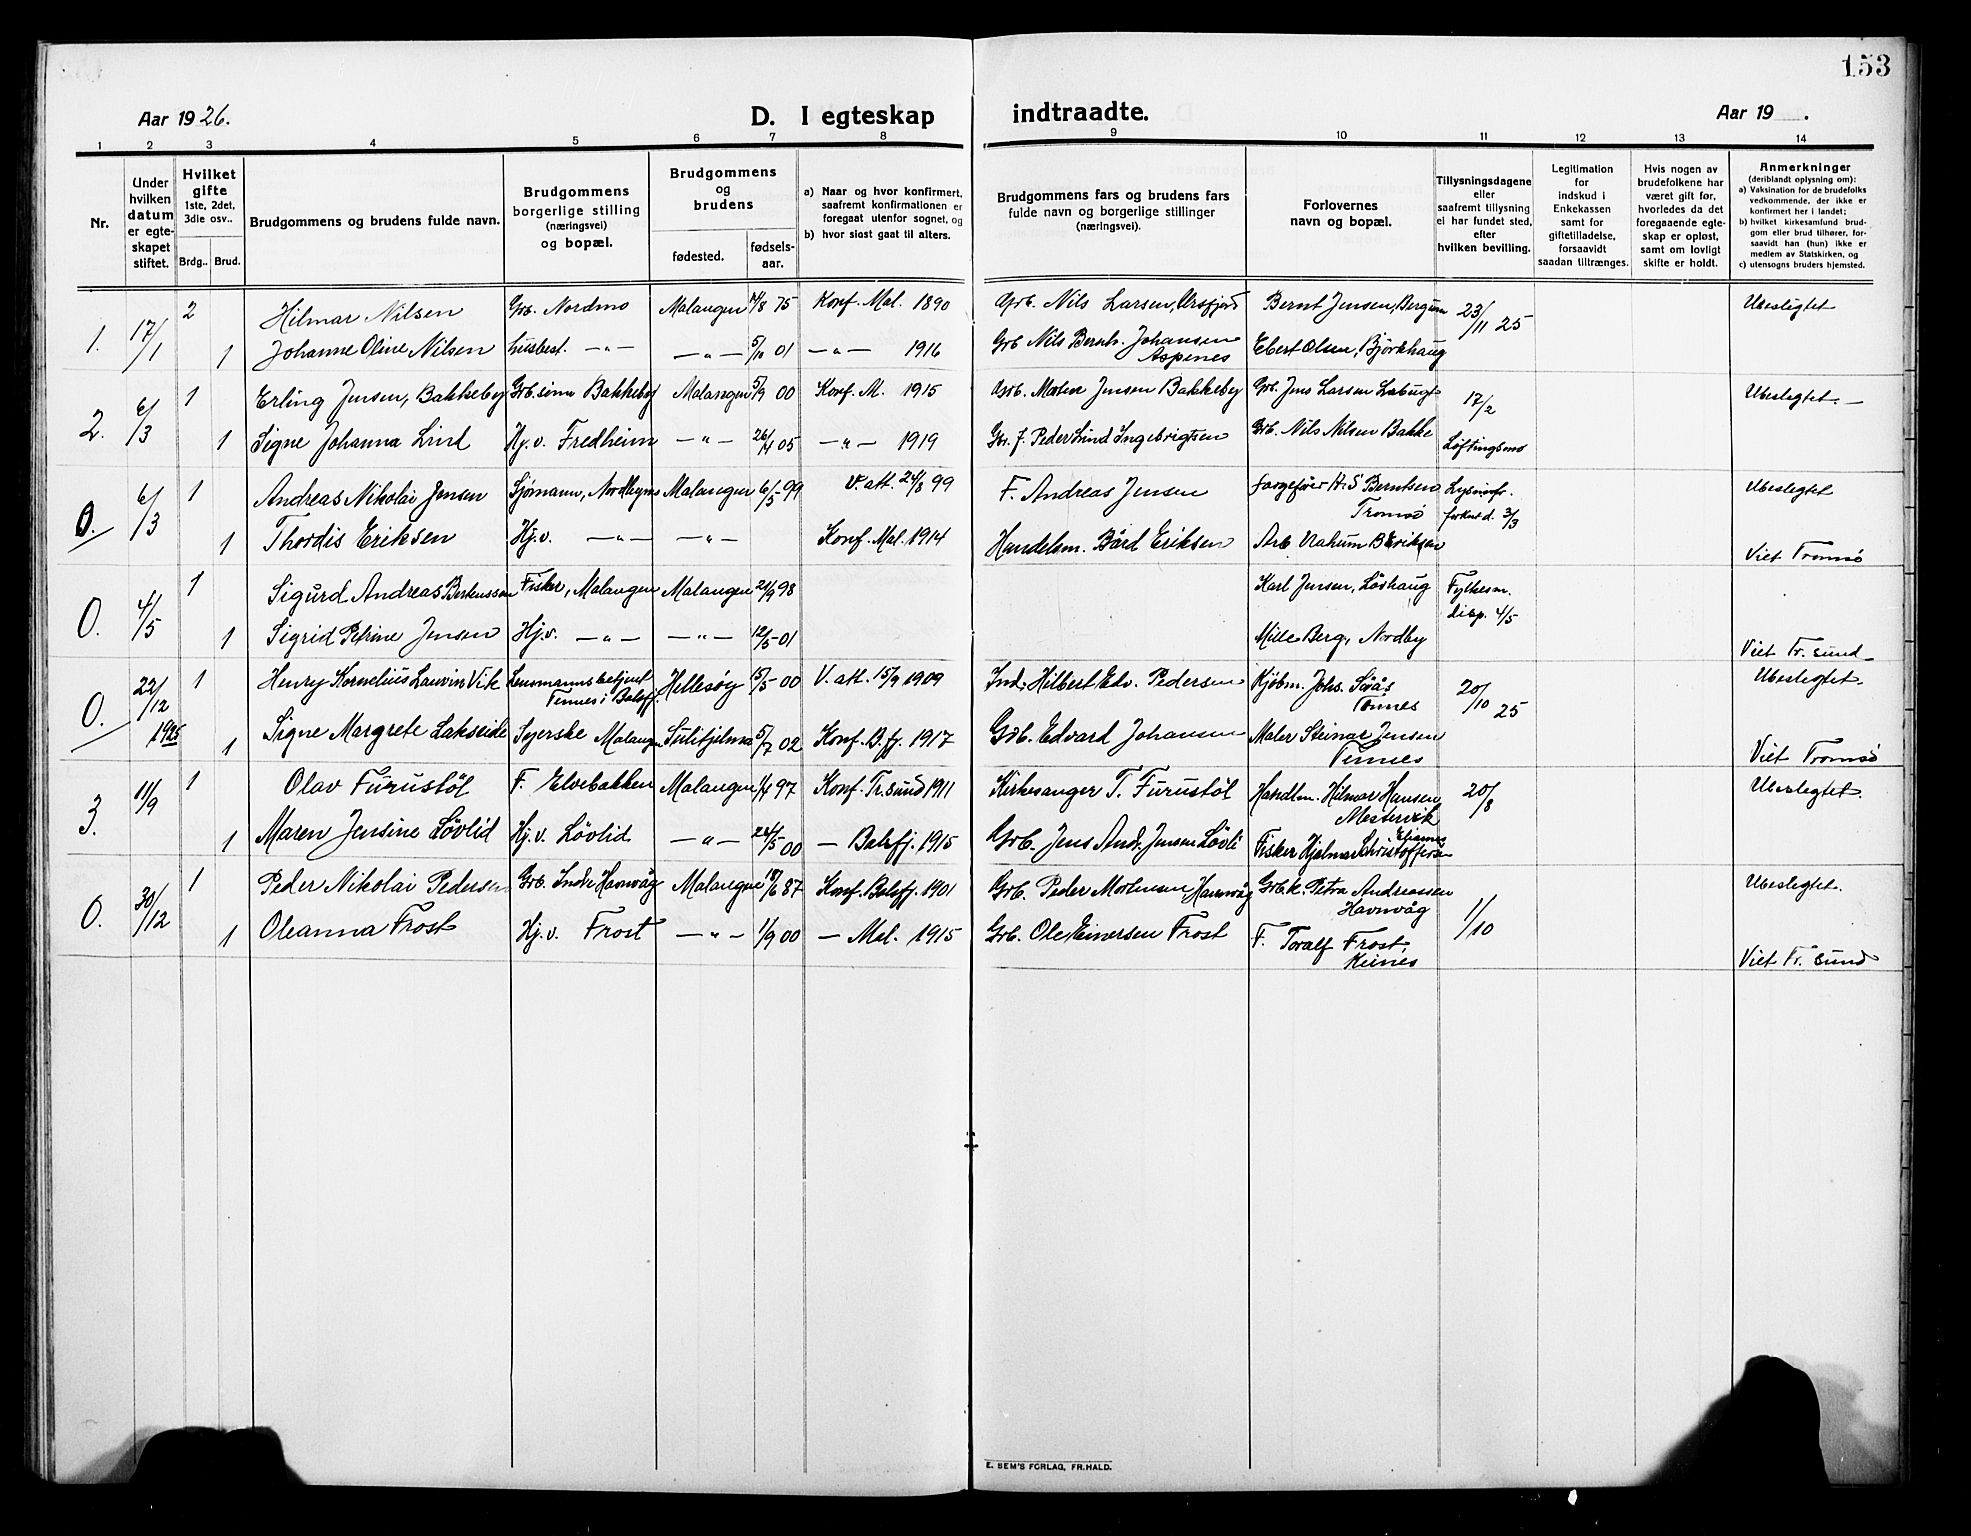 153
Aar 1926.
D. I egteskap
indtraadte.
Aar 19 .
1 2 3 4 5 6 7 8 9 10 11 12 13 14
Nr.
Under hvilken datum er egte-skapet stiftet.
Hvilket gifte 1ste, 2det, 3die osv..
Brdg.. Brud.
Brudgommens og brudens fulde navn.
Brudgommens borgerlige stilling (næringsvei) og bopæl.
Brudgommens og brudens
fødested. fødsels-aar.
a) Naar og hvor konfirmert, saafremt konfirmationen er foregaat utenfor sognet, og
b) hvor sidst gaat til alters.
Brudgommens fars og brudens fars fulde navn og borgerlige stillinger (næringsvei).
Forlovernes navn og bopæl.
Tillysningsdagene eller saafremt tillysning ei har fundet sted, efter hvilken bevilling.
Legitimation for indskud i Enkekassen samt for giftetilladelse, forsaavidt saadan tiltrænges.
Hvis nogen av brudefolkene har været gift før, hvorledes da det foregaaende egte-skap er opløst, samt om lovligt skifte er holdt.
Anmerkninger (deriblandt oplysning om):
a) Vaksination for de brudefolks vedkommende, der ikke er konfirmert her i landet;
b) hvilket kirkesamfund brud-gom eller brud tilhører, for-saavidt han (hun) ikke er medlem av Statskirken, og
c) utensogns bruders hjemsted.
1. 17/1 2 Hilmar Nilsen Grb. Nordmo Malangen 75 Konf. Mal. 1890 Grb. Nils Larsen, Bernt Jensen, 23/11 25 Ubeslegtet
1 Johanne Oline Nilsen Husbest. —"— —"— 01 —"— 1916 Grb Nils Bernh. Johansen Aspenes Ebert Olsen, Björkhaug
2. 6/3 1 Erling Jensen, Bakkeby Grb. sönn Bakkeby Malangen 5/9 00 Konf. M. 1915 Grb. Morten Jensen Bakkeby Grb. Jens Larsen 17/2 Ubeslegtet. —
1 Signe Johanna Lind Hj.v. Fredheim —"— 05 —"— 1919 Peder Lind Ingebrigtsen Grb. Nils Nilsen Bakke Löftingsmo
0. 6/3 1 Andreas Nikolai Jensen Sjömann, Malangen 6/5 99 V. att. 24/8 99 F. Andreas Jensen Berntsen Tromsö 3/3 Ubeslegtet
1 Thordis Eriksen Hj.v. —"— —"— Konf. Mal. 1914 Handelsm. Bård Eriksen Viet Tromsö
0. 4/5 1 Sigurd Andreas Fisker, Malangen Malangen 98 Karl Jensen, Lövhaug Fylkesm. disp. 4/5
1 Sigrid Petrine Jensen Hj.v. —"— —"— 12/5 01 Mille Berg, Nordby Viet Tr. sund
0. 22/12 1925 1 Henry Kornelius Lauvin Vik Lensmannsbetjent Tennes i Balsfj. Hillesöy 15/5 00 V. att. 15/9 1909 Ind. Hilbert Edv. Pedersen Kjöbm. Johs. Tennes 20/10 25 Ubeslegtet.
1 Signe Margrete Lakseide Syerske Malangen Sulitjelma 5/7 02 Konf. B.fj. 1917 Grb. Edvard Johansen Maler Steinar Jensen Tennes Viet Tromsö
3. 11/9 1 Olav Furustöl F. Elvebakken Malangen 97 Konf. Tr. sund 1911 Kirkesanger T. Furustöl Handlm. Hilmar Hansen Mestervik 20/8 Ubeslegtet.
1 Maren Jensine Lövlid Hj.v. Lövlid —"— 00 — Balsfj. 1915 Grb. Jens And. Jensen Lövli Fisker Hjalmar
0. 30/12 1 Peder Nikolai Pedersen Grb. Indre Havnvåg Malangen 87 Konf. Balsfj. 1901 Grb. Peder Mortensen Havnvåg Grbk. Petra Andreassen Havnvåg 1/10 Ubeslegtet.
1 Oleanna Frost Hj.v. Frost —"— 1/9 00 — Mal. 1915 Grb. Ole Einersen Frost F. Toralf Frost, Viet Tr. sund
E. SEM'S FORLAG, FR.HALD.